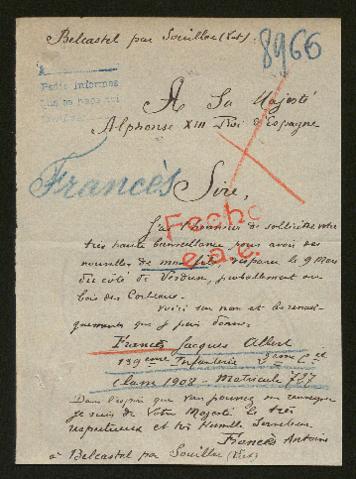 Belcastel par Souillac (Lot).
8966
A Sa Majesté
Alphonse XIII Roi d'Espagne
Francès
Sire,
J'ai l'honneur de solliciter votre
très haute bienveillance pour avoir des
nouvelles de mon fils, disparu le 9 mars
du côté de Verdun, probablement au
bois des Corbeaux.
Voici son nom et les rensei-
gnements que je puis donner.
Francès Jacques Albert
139eme Infanterie 3eme Cie
Classe 1908 - Matricule 727
Dans l'espoir que vous pourrez me renseigner
je suis de Votre Majesté le très
respectueux et très humble Serviteur
Francès Antoine
à Belcastel par Souillac (Lot)
Fecho